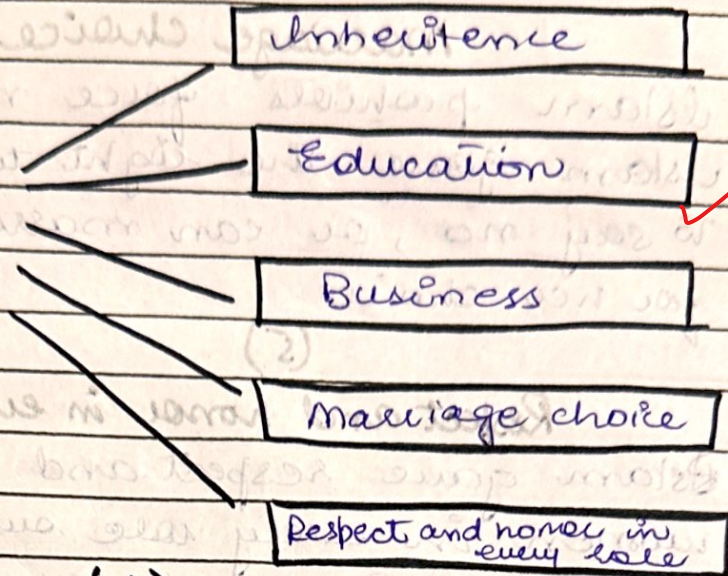 Inheritence
Education
Business
Marriage choice
Respect and honor in
every role